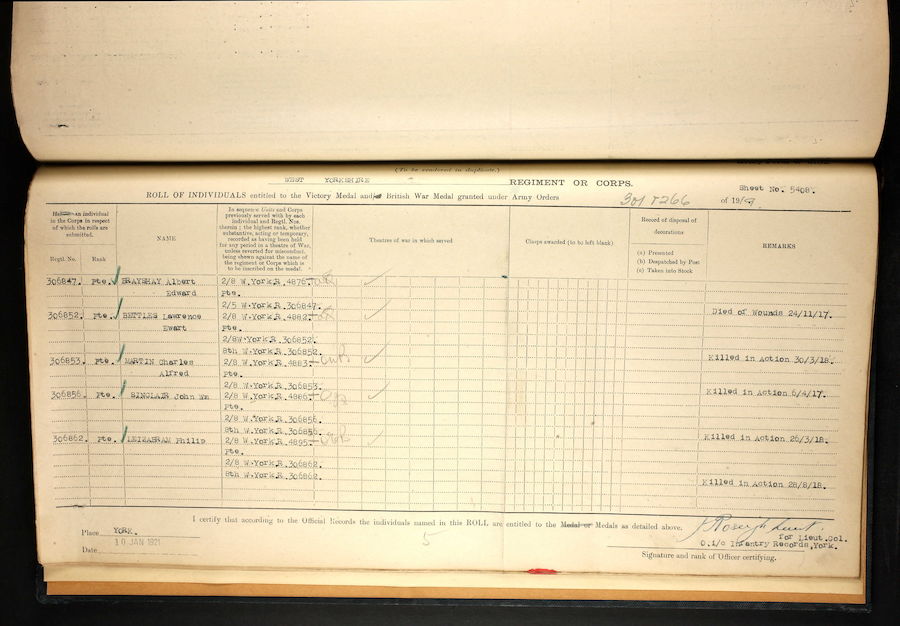 (To be rendered in duplicate.)
WEST YORKSHIRE REGIMENT OR CORPS.
Sheet No. 5408.
ROLL OF INDIVIDUALS entitled to the Victory Medal and/or British War Medal granted under Army Orders 301 & 266 of 19/9.
an individual in the Corps in respect of which the rolls are submitted.
Regtl. No.
Rank
NAME
In sequence Units and Corps previously served with by each individual and Regtl. Nos. therein; the highest rank, whether substantive, acting or temporary, recorded as having been held for any period in a theatre of War, unless reverted for misconduct, being shown against the name of the regiment or Corps which is to be inscribed on the medal.
Theatres of war in which served
Clasps awarded (to be left blank)
Record of disposal of decorations
(a) Presented
(b) Despatched by Post
(c) Taken into Stock
REMARKS
306847. Pte. BRAYSHAY Albert 2/8 W.York.R. 4876.
Edward Pte.
2/5 W.York.R. 306847.
306852. Pte. BETTLES Lawrence 2/8 W.York.R. 4882. Died of Wounds 24/11/17.
Ewart Pte.
2/8 W.York.R. 306852.
8th W.York.R. 306852.
306853. Pte. MARTIN Charles 2/8 W.York.R. 4883. Killed in Action 30/3/18.
Alfred Pte.
2/8 W.York.R. 306853.
306856. Pte. SINCLAIR John Wm 2/8 W.York.R. 4886. Killed in Action 6/4/17.
Pte.
2/8 W.York.R. 306856.
8th W.York.R. 306856.
306862. Pte. LEIZABRAM Philip 2/8 W.York.R. 4895. Killed in Action 26/3/18.
Pte.
2/8 W.York.R. 306862.
8th W.York.R. 306862.
Killed in Action 28/8/18.
I certify that according to the Official Records the individuals named in this ROLL are entitled to the Medal or Medals as detailed above.
Place YORK.
Date 10 JAN 1921
5
Lieut.
for Lieut.Col.
O.i/c Infantry Records, York.
Signature and rank of Officer certifying.